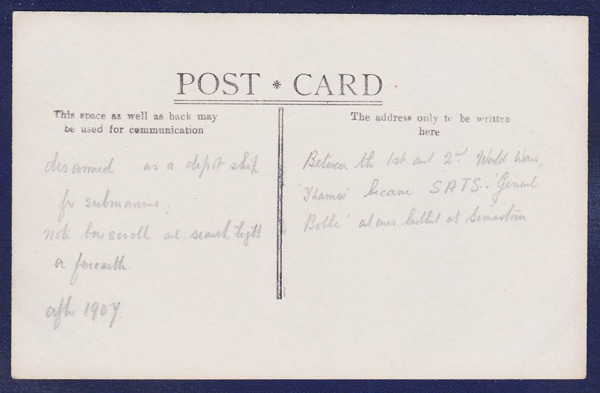 POST * CARD
This space as well as back may
be used for communication
The address only to be written
here
disarmed as a depot ship
for submarines.
note bow scroll and search light
on
after 1907
Between the 1st and 2nd World Wars,
'Thames' became SATS. 'General
Botha' at Simonstown